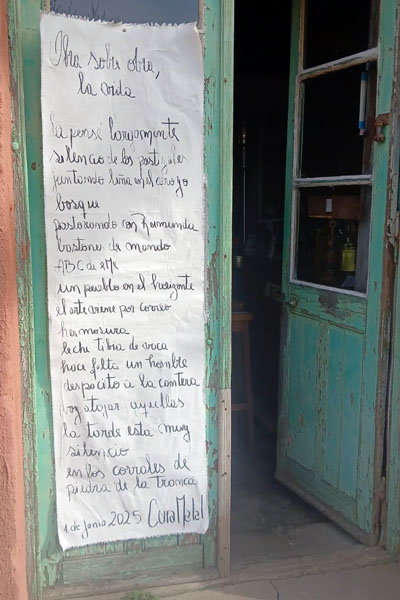 Obra sobre obra,
la vida
la pensé largamente
silencio de los postigales
juntando leña en el cerro y o
bosque
pastoreando con Raimunda
bastones de mando
ABC de
un pueblo en el horizonte
el arte viene por correo
hermosura
leche tibia de vaca
hace falta un hombre
despacito a la cantera
voy atajar aquellas
la tarde esta muy
silencio
en los corrales de
piedra de la Tranca
1 de Junio 2025 Cura Malal